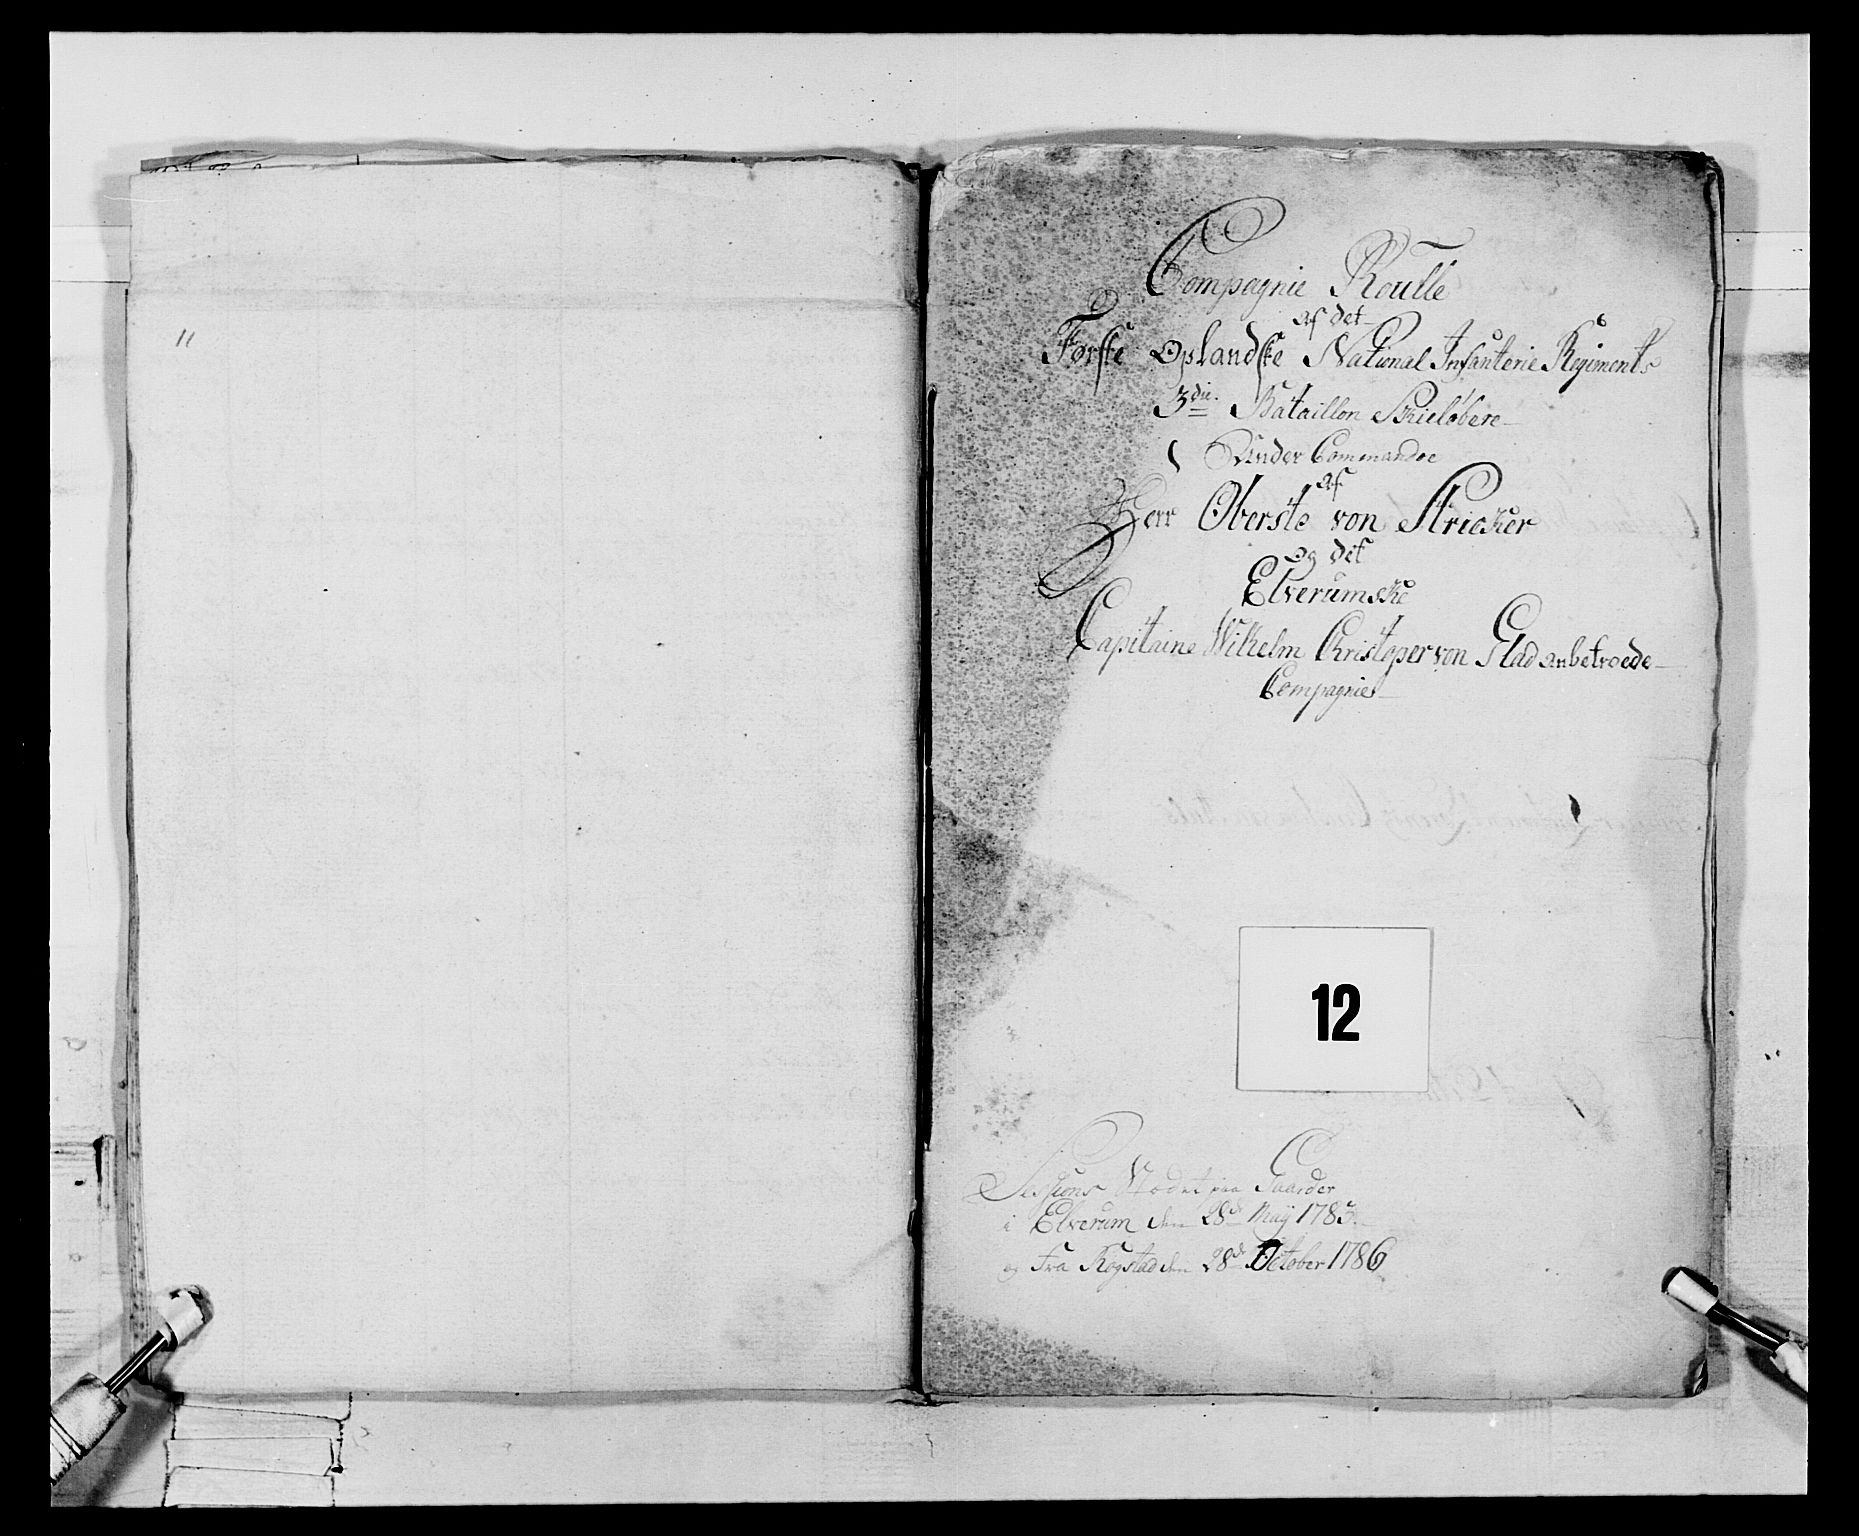 11
Compagnie Roulle
af det
Første Oplandske National Infanterie Regiments
3die Bataillon Skieløbere
Under Commandoe
af
Herr Oberste von Stricker
og det
Elverumske
Capitaine Wilhelm Christoper von Glad anbetroede
Compagnie
12
Sessions Mødet paa Gaarder
i Elverum den 28d May 1785
og Fra Rogstad den 28d October 1786